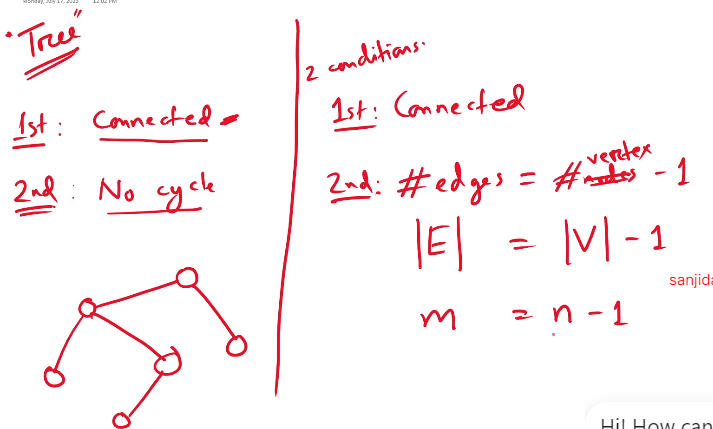 Monday, July 17, 2023 12:02 PM
"Tree"
1st: Connected
2nd: No cycle
2 conditions.
1st: Connected
2nd: #edges = #nodes vertex - 1
|E| = |V| - 1
m = n - 1
sanjida
Hi! How can